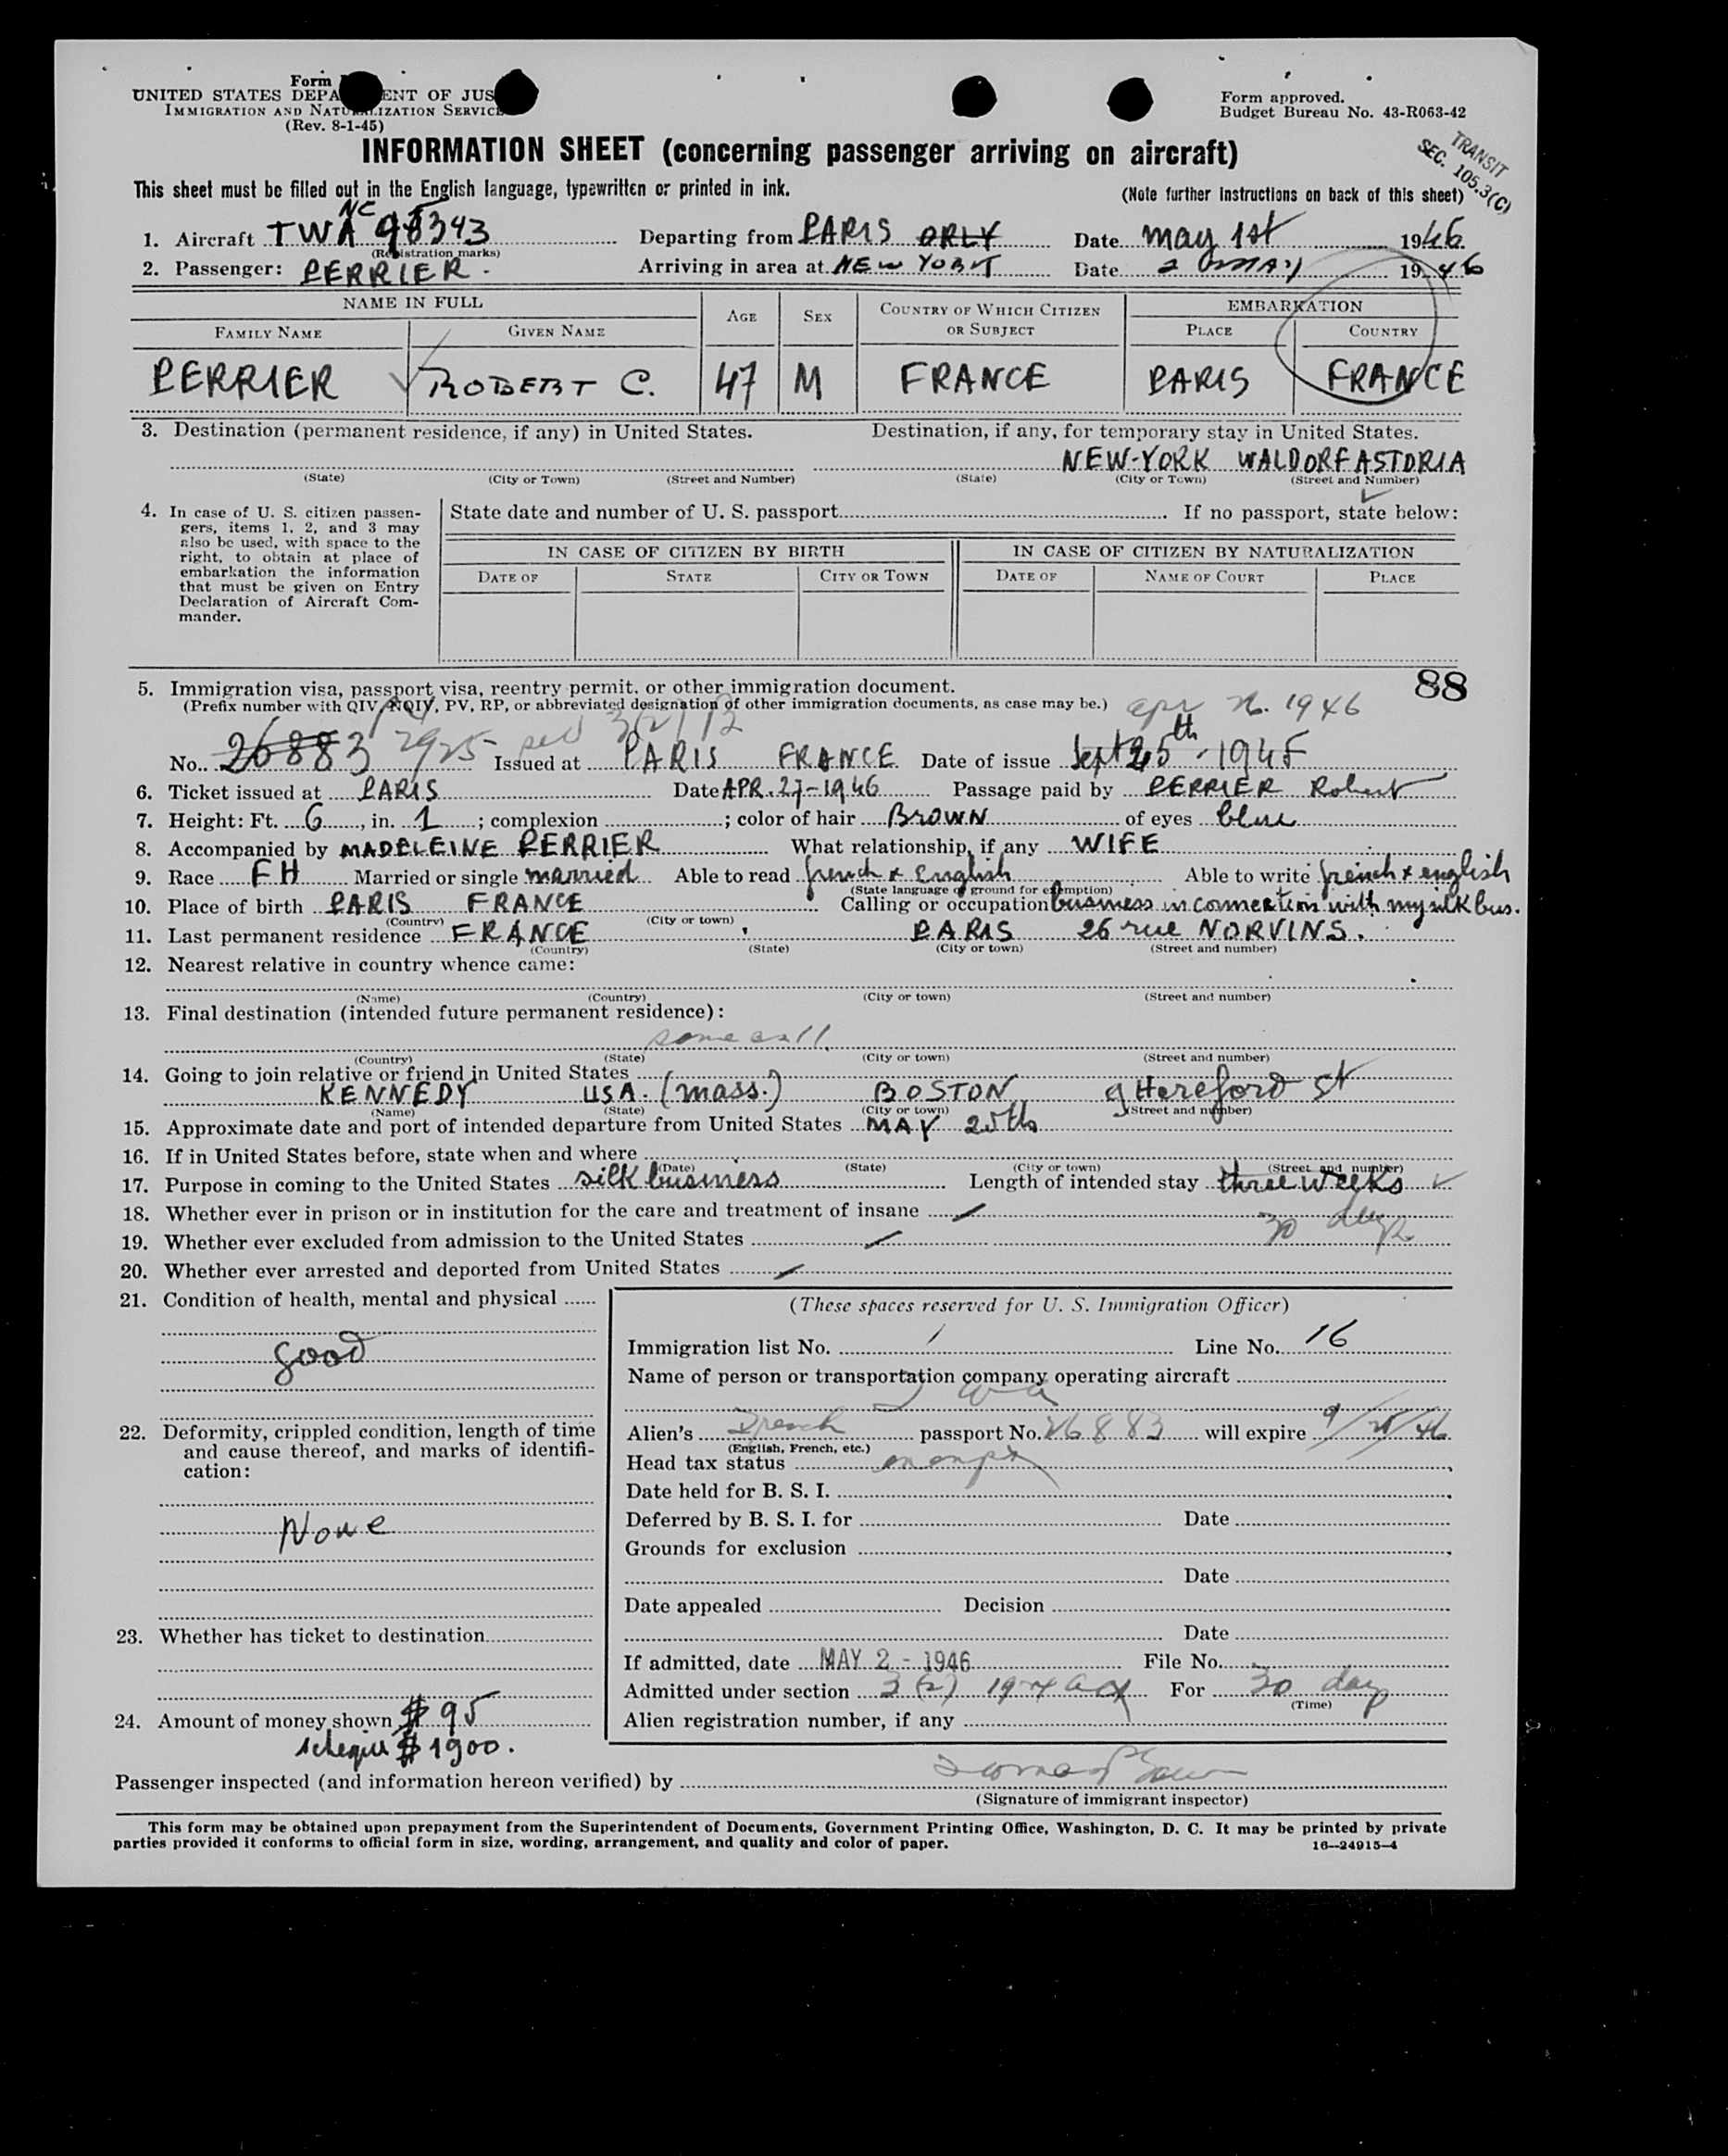 Form
UNITED STATES DEPA ENT OF JUS
IMMIGRATION AND NATURALIZATION SERVICE
(Rev. 8-1-45)
Form approved.
Budget Bureau No. 43-R063-42
INFORMATION SHEET (concerning passenger arriving on aircraft)
TRANSIT
SEC. 105.3(C)
This sheet must be filled out in the English language, typewritten or printed in ink. (Note further instructions on back of this sheet)
NC
1. Aircraft TWA 98343 Departing from PARIS ORLY Date may 1st 1946
(Registration marks)
2. Passenger: PERRIER. Arriving in area at NEW YORK Date 2 MAY 1946
NAME IN FULL AGE SEX COUNTRY OF WHICH CITIZEN OR SUBJECT EMBARKATION
FAMILY NAME GIVEN NAME PLACE COUNTRY
PERRIER ROBERT C. 47 M FRANCE PARIS FRANCE
3. Destination (permanent residence, if any) in United States. Destination, if any, for temporary stay in United States.
NEW-YORK WALDORF ASTORIA
(State) (City or Town) (Street and Number) (State) (City or Town) (Street and Number)
4. In case of U. S. citizen passengers, items 1, 2, and 3 may also be used, with space to the right, to obtain at place of embarkation the information that must be given on Entry Declaration of Aircraft Commander.
State date and number of U. S. passport. If no passport, state below:
IN CASE OF CITIZEN BY BIRTH IN CASE OF CITIZEN BY NATURALIZATION
DATE OF STATE CITY OR TOWN DATE OF NAME OF COURT PLACE
88
5. Immigration visa, passport visa, reentry permit. or other immigration document.
(Prefix number with QIV, NQIV, PV, RP, or abbreviated designation of other immigration documents, as case may be.) apr 26. 1946
No. 26883 2925 sec 3(2) Issued at PARIS FRANCE Date of issue Sept 25th 1945
6. Ticket issued at PARIS Date APR. 27-1946 Passage paid by PERRIER Robert
7. Height: Ft. 6, in. 1; complexion ; color of hair BROWN of eyes blue
8. Accompanied by MADELEINE PERRIER What relationship, if any WIFE
9. Race FH Married or single married Able to read french & English Able to write french & english
(State language or ground for exemption)
10. Place of birth PARIS FRANCE Calling or occupation business in connection with my silk bus.
(Country) (City or town)
11. Last permanent residence FRANCE PARIS 26 rue NORVINS.
(Country) (State) (City or town) (Street and number)
12. Nearest relative in country whence came:
(Name) (Country) (City or town) (Street and number)
13. Final destination (intended future permanent residence):
(Country) (State) (City or town) (Street and number)
14. Going to join relative or friend in United States
KENNEDY USA. (Mass.) BOSTON 9 Hereford St
(Name) (State) (City or town) (Street and number)
15. Approximate date and port of intended departure from United States MAY 25th
16. If in United States before, state when and where
(Date) (State) (City or town) (Street and number)
17. Purpose in coming to the United States silk business Length of intended stay three weeks
30 days
18. Whether ever in prison or in institution for the care and treatment of insane
19. Whether ever excluded from admission to the United States
20. Whether ever arrested and deported from United States
21. Condition of health, mental and physical
good
22. Deformity, crippled condition, length of time and cause thereof, and marks of identification:
None
23. Whether has ticket to destination
24. Amount of money shown $95
$1900.
(These spaces reserved for U. S. Immigration Officer)
Immigration list No. 1 Line No. 16
Name of person or transportation company operating aircraft
TWA
Alien's French passport No. 26883 will expire 9/25/46
(English, French, etc.)
Head tax status exempt
Date held for B. S. I.
Deferred by B. S. I. for Date
Grounds for exclusion
Date
Date appealed Decision
Date
If admitted, date MAY 2 - 1946 File No.
Admitted under section 3(2) 1924 act For 30 day
(Time)
Alien registration number, if any
Passenger inspected (and information hereon verified) by
(Signature of immigrant inspector)
This form may be obtained upon prepayment from the Superintendent of Documents, Government Printing Office, Washington, D. C. It may be printed by private
parties provided it conforms to official form in size, wording, arrangement, and quality and color of paper. 16—24915-4